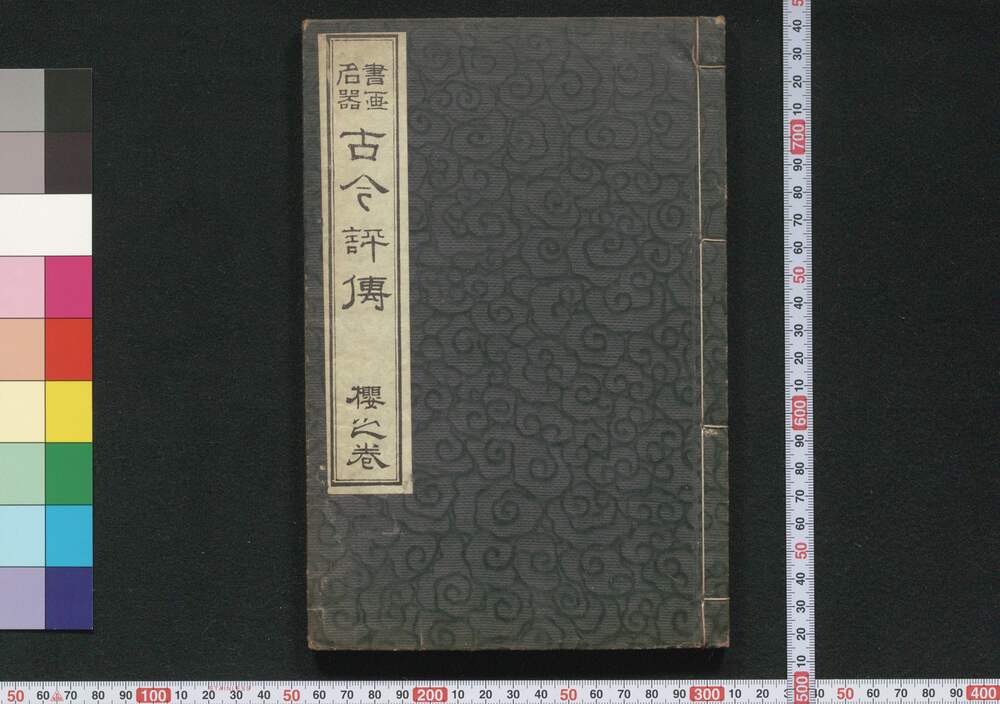 書画
名器
古今評傳
櫻之卷
50 60 70 80 90 100 10 20 30 40 50 60 70 80 90 200 10 20 30 40 50 60 70 80 90 300 10 20 30 40 50 60 70 80 90 400
40 30 20 10 700 90 80 70 60 50 40 30 20 10 600 90 80 70 60 50 40 30 20 10 500